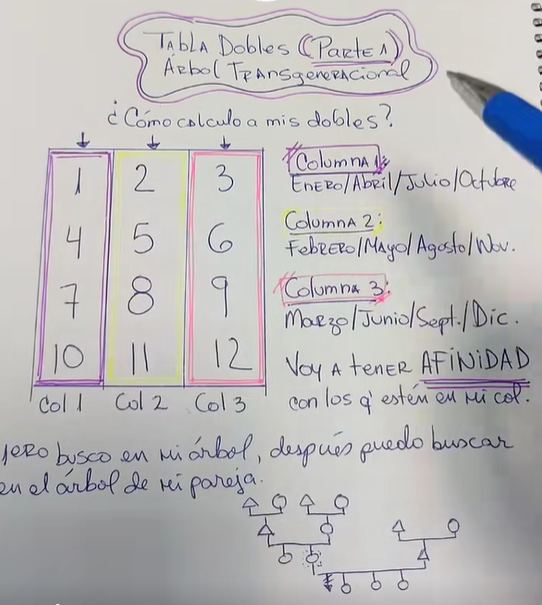 Tabla Dobles (Parte 1)
Árbol Transgeneracional
¿Cómo calculo a mis dobles?
1 2 3
4 5 6
7 8 9
10 11 12
Col 1 Col 2 Col 3
Columna 1:
Enero/Abril/Julio/Octubre
Columna 2:
Febrero/Mayo/Agosto/Nov.
Columna 3:
Marzo/Junio/Sept./Dic.
Voy a tener AFINIDAD
con los q' estén en mi col.
mero busco en mi árbol, después puedo buscar
en el árbol de mi pareja.